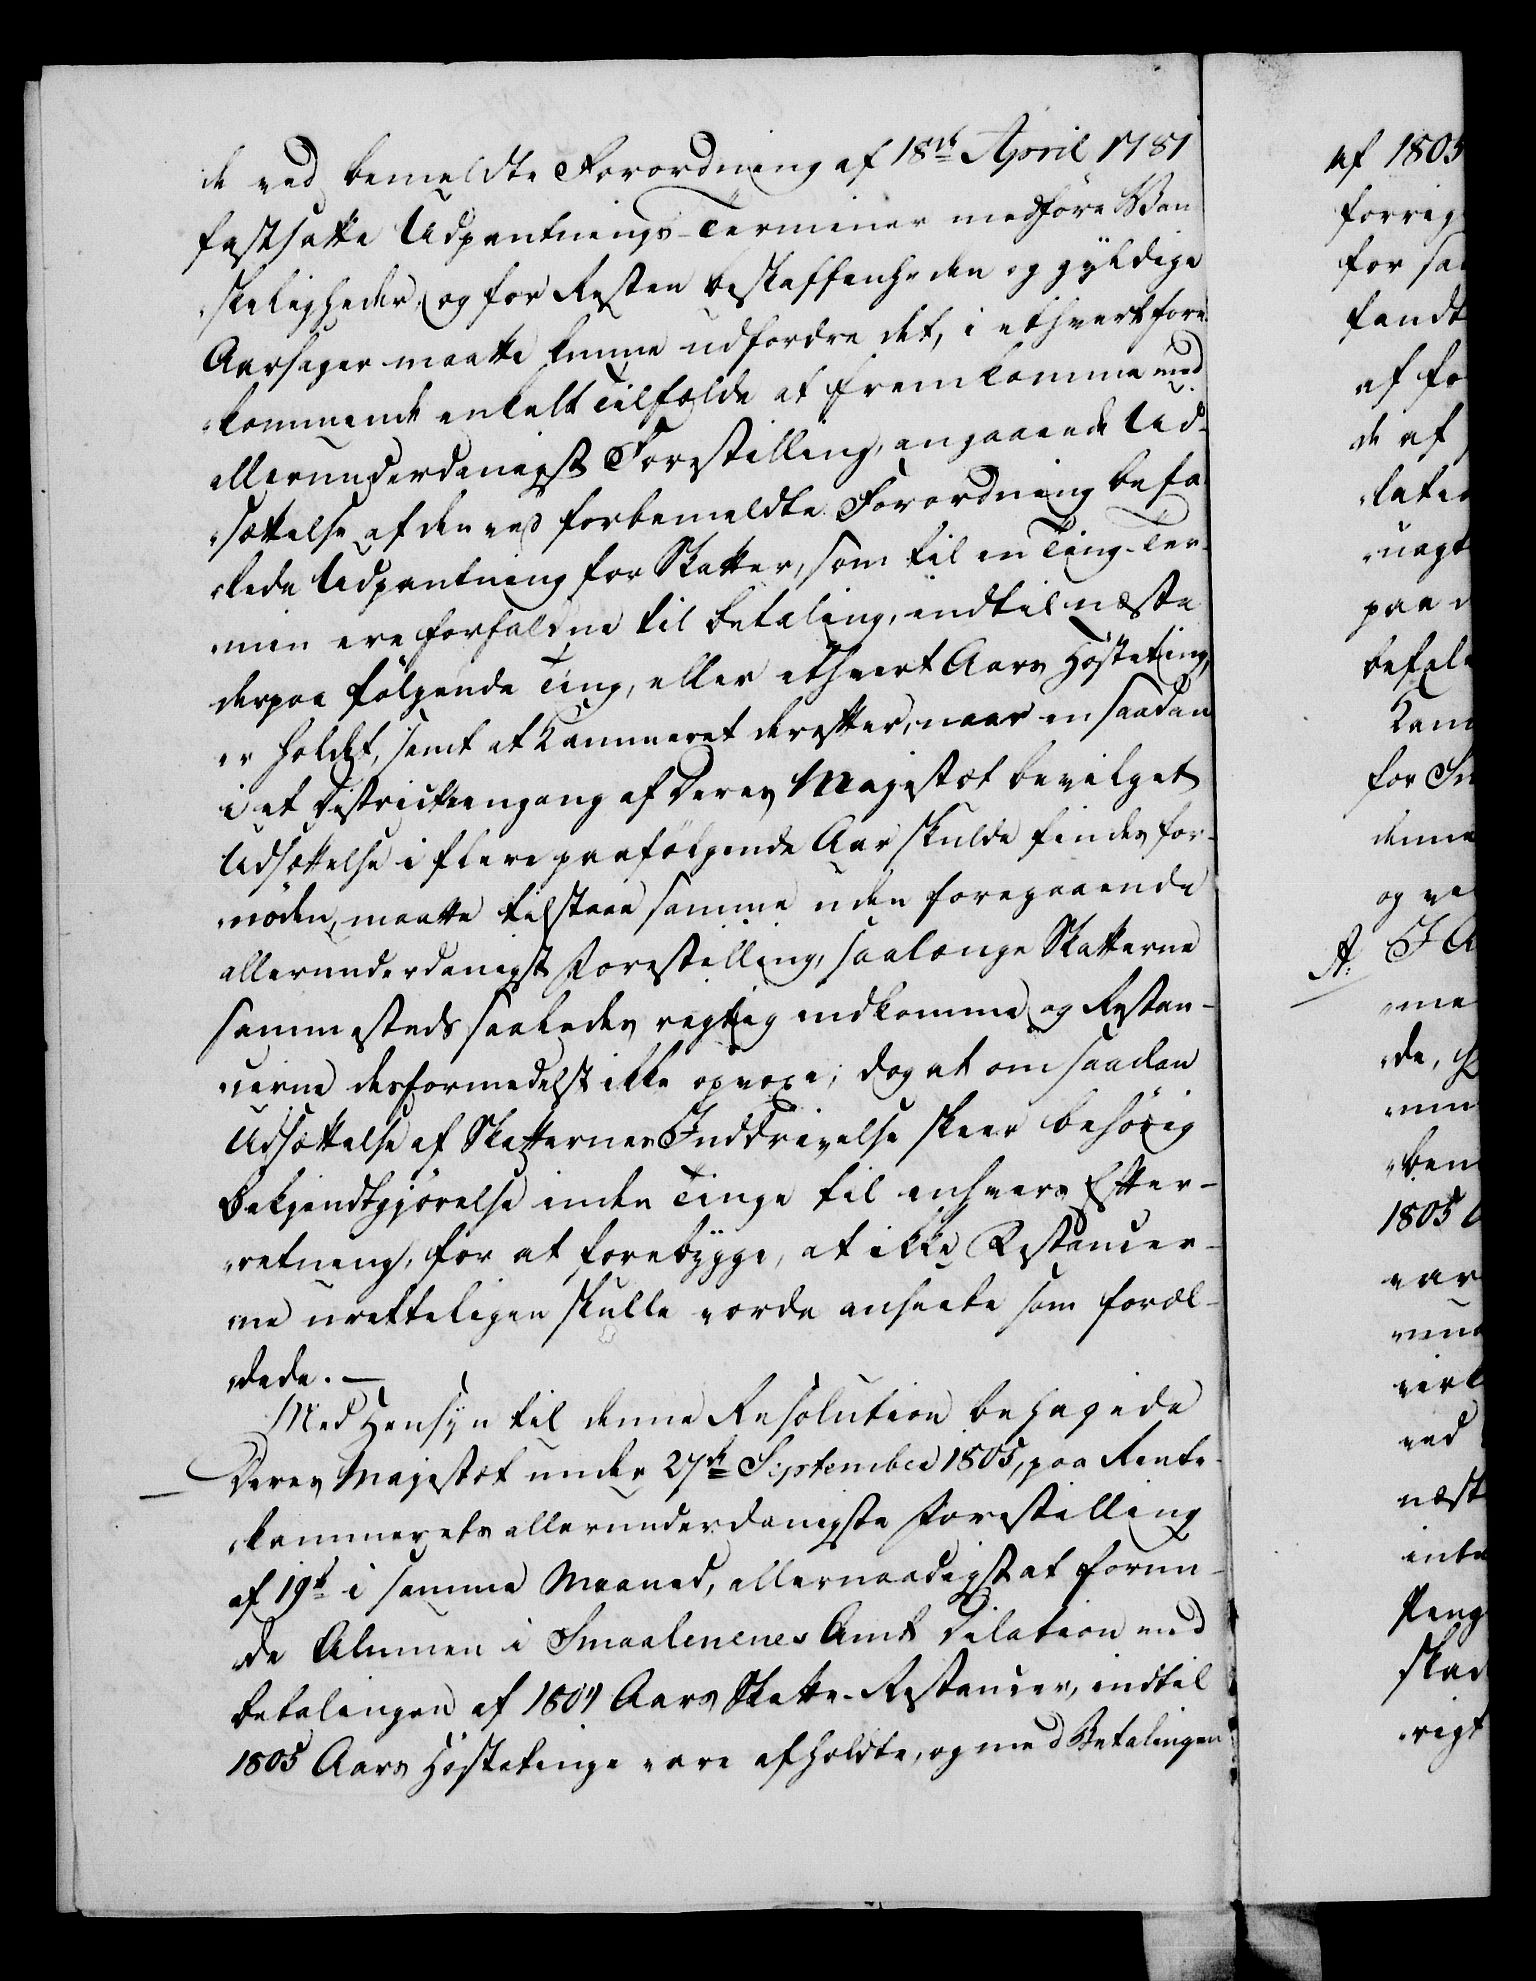 de ved bemeldte Forordning af 18de April 1781
fastsatte Udpantnings-Terminer medføre Van-
„skeligheder, og for Resten beskaffenheden og gyldige
Aarsager maatte kunne udfordre det, i ethvert fore-
„kommende enkelt Tilfælde at fremkomme med
allerunderdanigst Forestilling, angaaende Ud-
„sættelse af den ved forbemeldte Forordning befa-
„lede Udpantning for Skatter, som til en Ting-Ter-
„min ere forfaldne til betaling, indtil næste
derpaa følgende Ting, eller ethvert Aars Høsteting,
er holdt, samt at Kammeret derefter, naar en saadan
i et District eengang af Deres Majestæt bevilget
Udsættelse i flere paafølgende Aar skulde findes for-
„nøden, maatte tilstaae samme uden foregaaende
allerunderdanigst Forestilling, saalænge Skatterne
sammesteds saaledes rigtig indkomme, og Restan-
„cerne desformedelst ikke opvoxe; dog at om saadan
Udsættelse af Skatternes Inddrivelse skeer behørig
Bekjendtgjørelse inden Tinge til enhvers Efter-
„retning, for at forebygge, at ikke Restancer-
„ne uretteligen skulle vorde anseete som foræl-
„dede. —
Med Hensyn til denne Resolution behagede
Deres Majestæt under 27de September 1805, paa Rente-
„kammerets allerunderdanigste Forestilling
af 19de i samme Maaned, allernaadigst at forun-
„de Almuen i Smaalenenes Amt Dilation med
betalingen af 1804 Aars Skatte-Restancer, indtil
1805 Aars Høstetinge vare afholdte, og med Betalingen
af 1805
for
fandt
af
de af
paa
for
og
A:
„de,
1805
ved